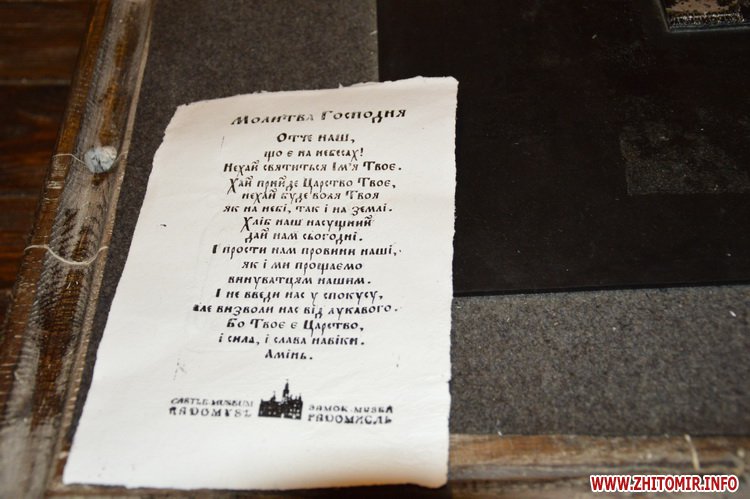 Молитва Господня
Отче наш,
що є на небесах!
Нехай святиться Ім'я Твоє.
Хай прийде Царство Твоє,
нехай буде воля Твоя
як на небі, так і на землі.
Хліб наш насущний
дай нам сьогодні.
І прости нам провини наші,
як і ми прощаємо
винуватцям нашим.
І не введи нас у спокусу,
але визволи нас від лукавого.
Бо Твоє є Царство,
і сила, і слава навіки.
Амінь.
CASTLE-MUSEUM
RADOMYSL
ЗАМОК-МУЗЕЙ
РАДОМИСЛЬ
WWW.ZHITOMIR.INFO